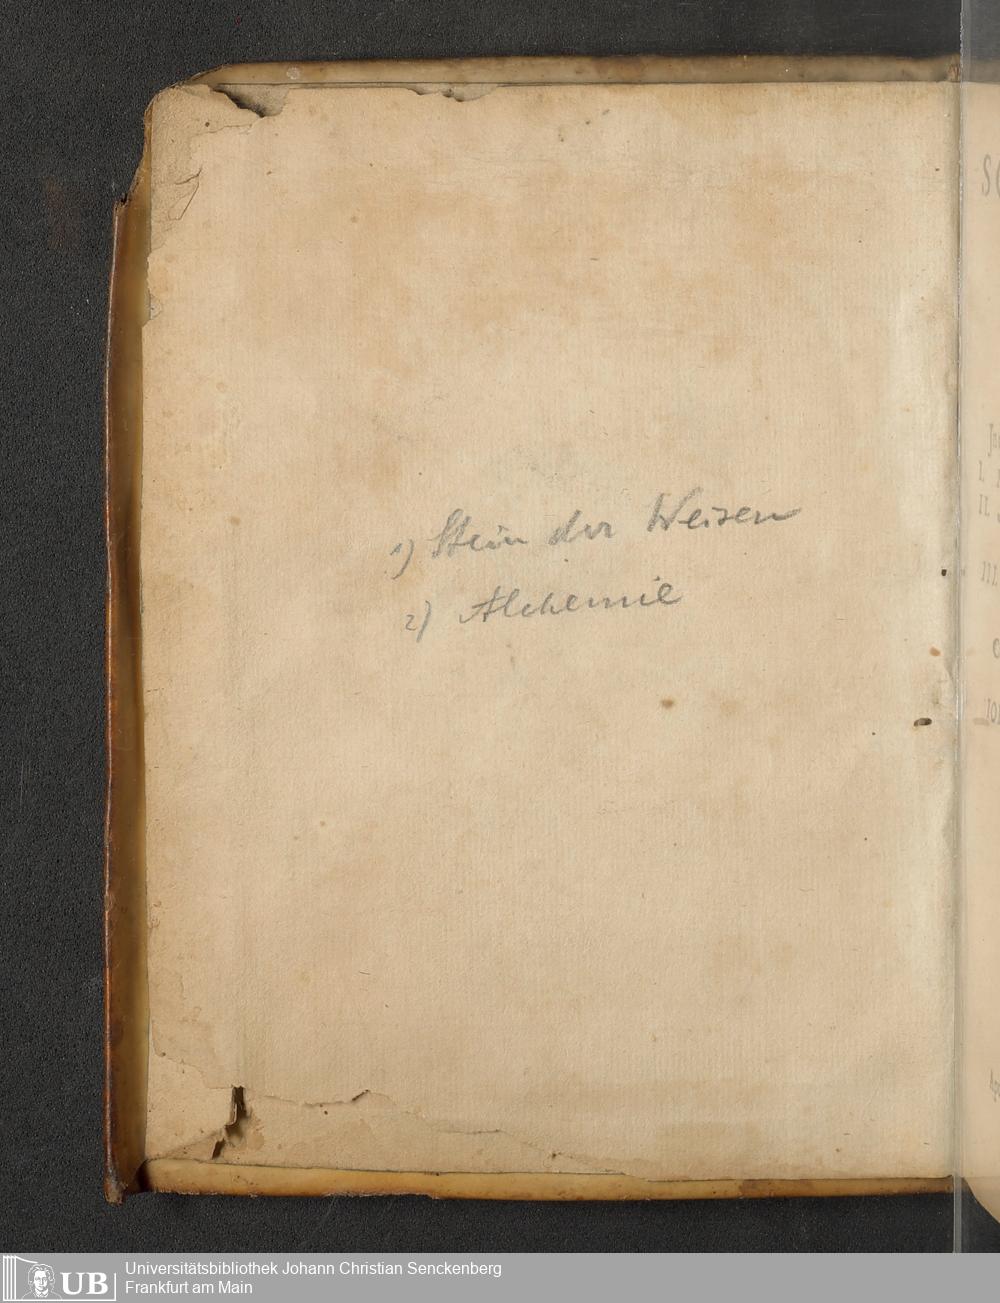 1) Stein der Weisen
2) Alchemie
UB
Universitätsbibliothek Johann Christian Senckenberg
Frankfurt am Main